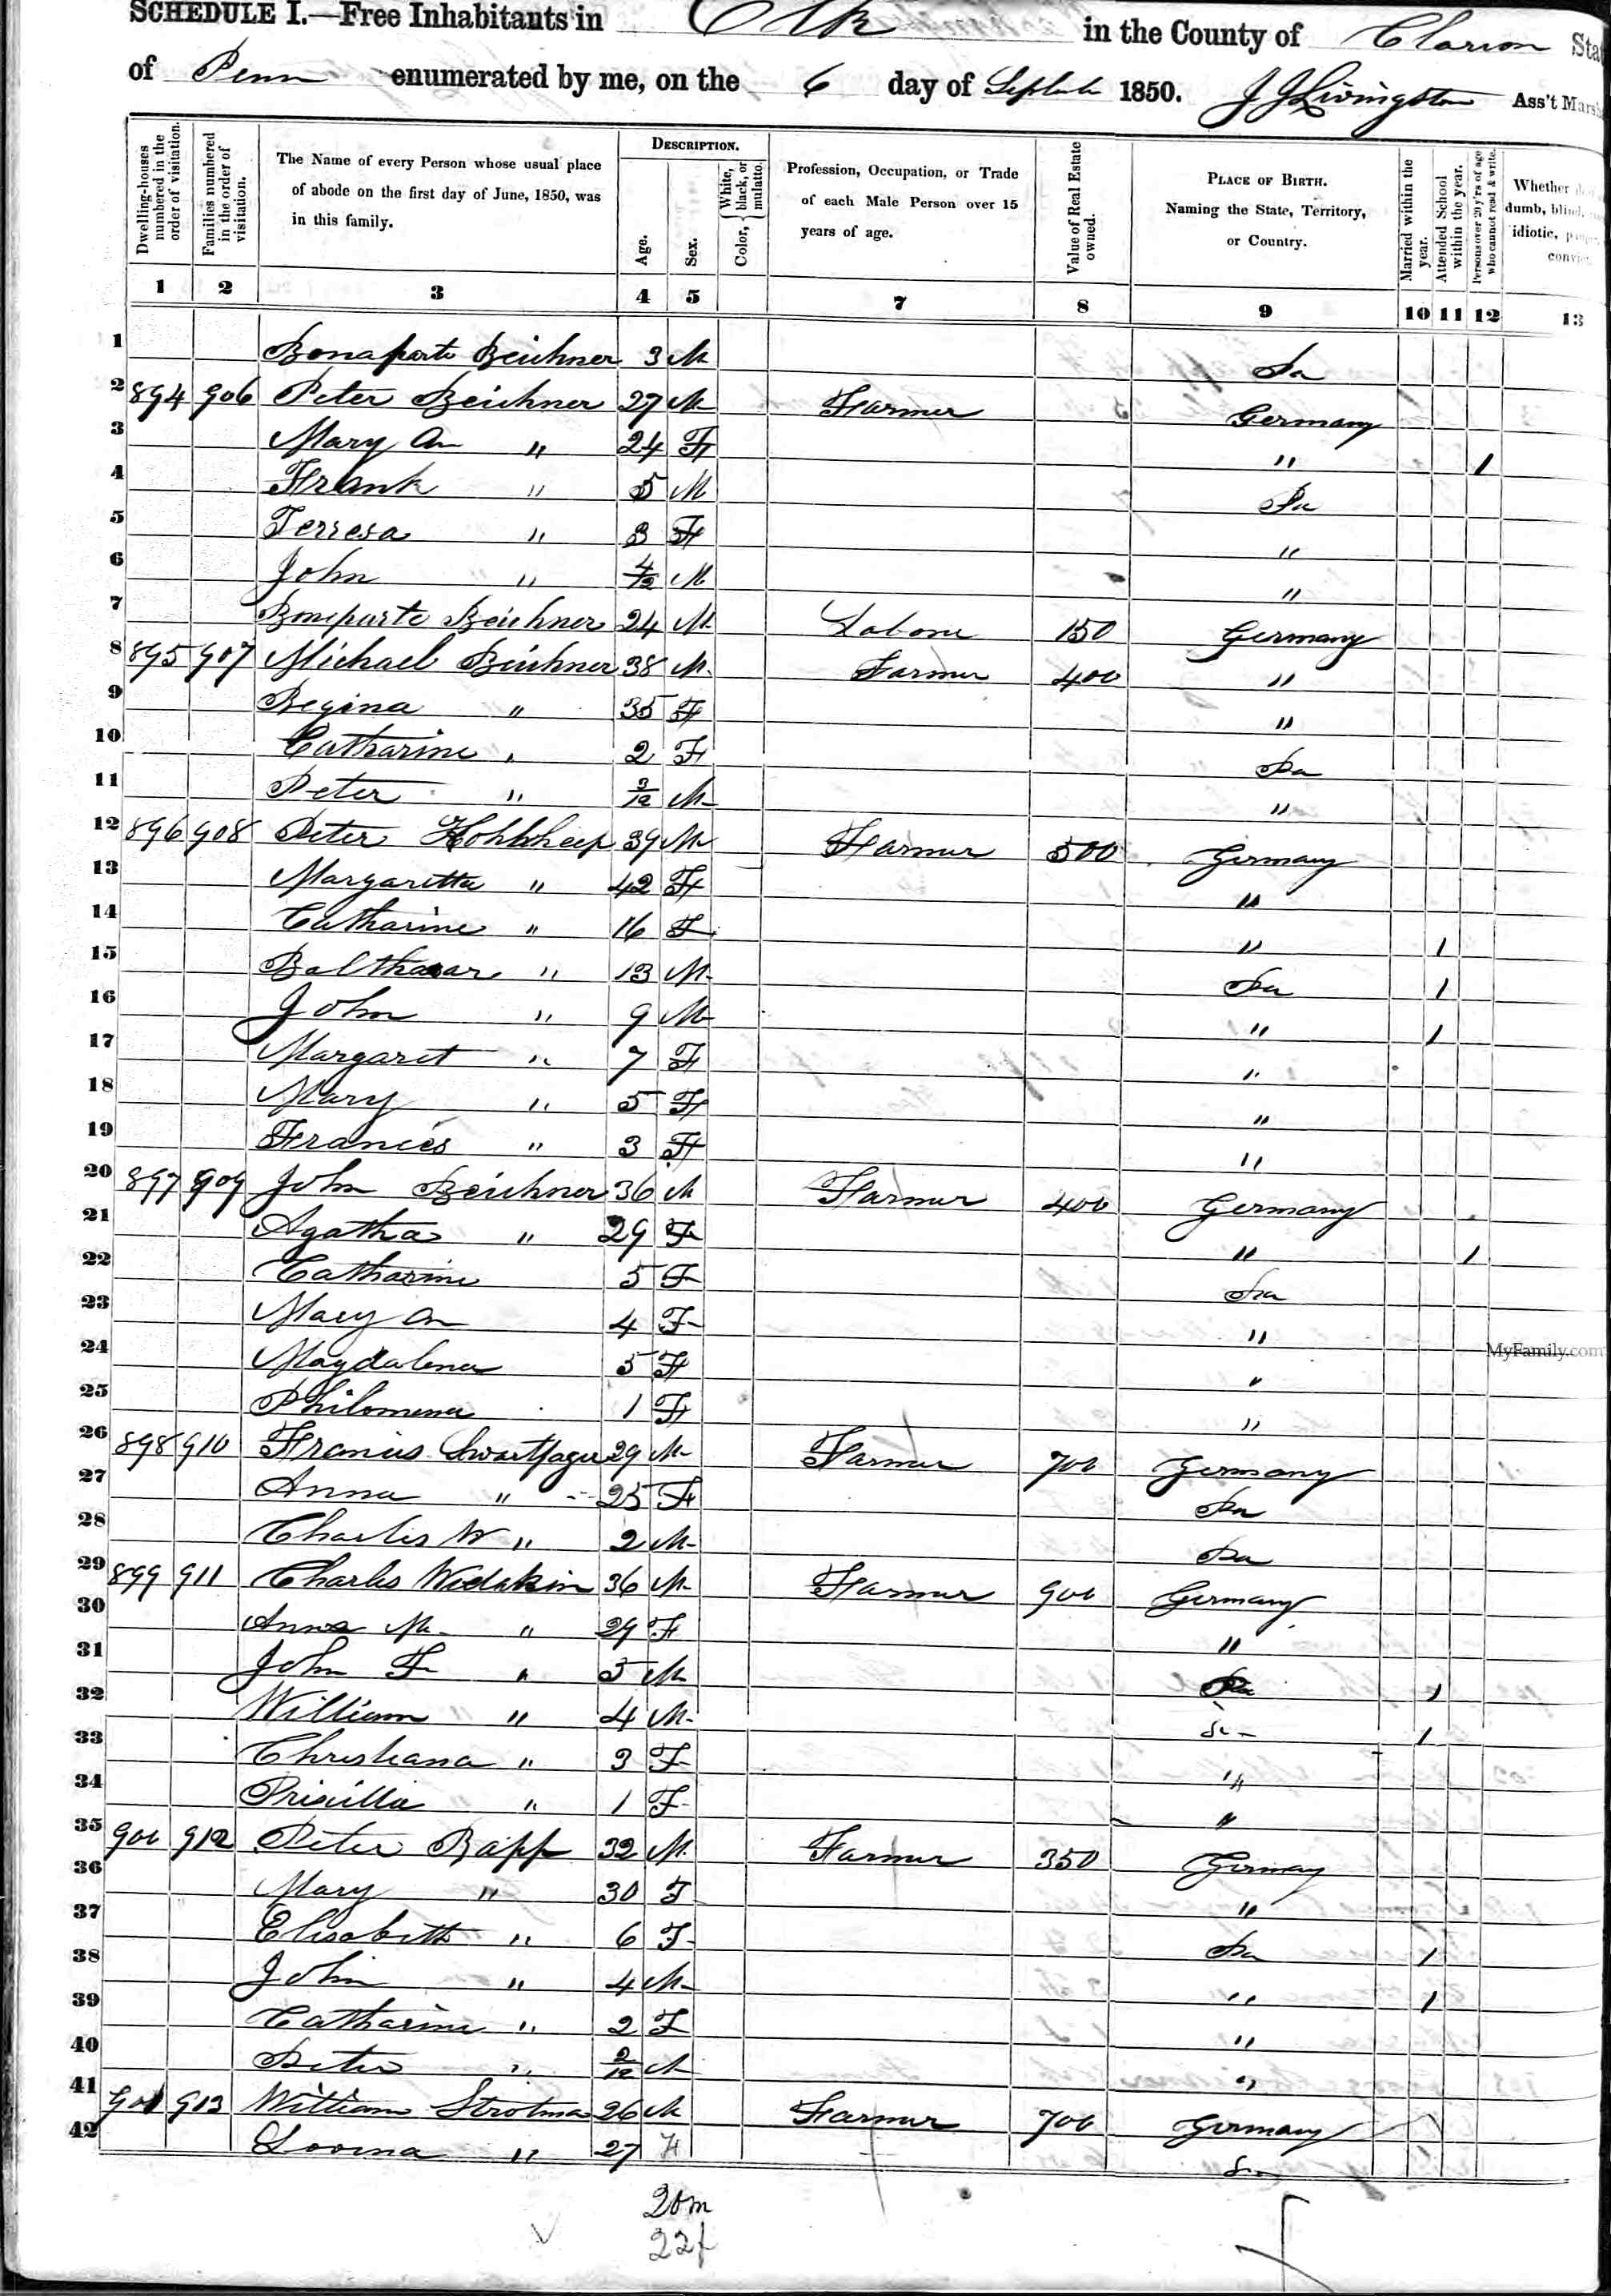 SCHEDULE I.—Free Inhabitants in Elk in the County of Clarion Stat
of Penn enumerated by me, on the 6 day of Septembr 1850. J J Livingston Ass't Mars
Dwelling-houses numbered in the order of visitation.
Families numbered in the order of visitation.
The Name of every Person whose usual place of abode on the first day of June, 1850, was in this family.
DESCRIPTION.
Age.
Sex.
Color, { White, black, or mulatto.
Profession, Occupation, or Trade of each Male Person over 15 years of age.
Value of Real Estate owned.
PLACE OF BIRTH.
Naming the State, Territory, or Country.
Married within the year.
Attended School within the year.
Persons over 20 y'rs of age who cannot read & write.
Whether dumb, blind, idiotic,
1 2 3 4 5 7 8 9 10 11 12 13
1 Bonaparte Beichner 3 M Pa
2 894 906 Peter Beichner 27 M Farmer Germany
3 Mary An " 24 F " 1
4 Frank " 5 M Pa
5 Terresa " 3 F "
6 John " 4/12 M "
7 Boneparte Beichner 24 M Labore 150 Germany
8 895 907 Michael Beichner 38 M Farmer 400 "
9 Regina " 35 F "
10 Catharine " 2 F Pa
11 Peter " 3/12 M "
12 896 908 Peter 39 M Farmer 500 Germany
13 Margaretta " 42 F "
14 Catharine " 16 F " 1
15 Balthasar " 13 M Pa 1
16 John " 9 M " 1
17 Margaret " 7 F "
18 Mary " 5 F "
19 Francis " 3 F "
20 897 909 John Beichner 36 M Farmer 400 Germany
21 Agatha " 29 F " 1
22 Catharine 5 F Pa
23 Mary An 4 F "
24 Magdalena 5 F "
25 Philomena 1 F "
26 898 910 Francis 29 M Farmer 700 Germany
27 Anna " 25 F Pa
28 Charles W " 2 M Pa
29 899 911 Charles 36 M Farmer 900 Germany
30 Anna M " 29 F "
31 John F " 5 M Pa 1
32 William " 4 M 1
33 Christiana " 3 F "
34 Priscilla " 1 F "
35 900 912 Peter Rapp 32 M Farmer 350 Germany
36 Mary " 30 F "
37 Elisabeth " 6 F Pa 1
38 John " 4 M " 1
39 Catharine " 2 F "
40 Peter " 2/12 M "
41 901 913 William Strotman 26 M Farmer 700 Germany
42 Lovina " 27 F
20m
22f
MyFamily.com